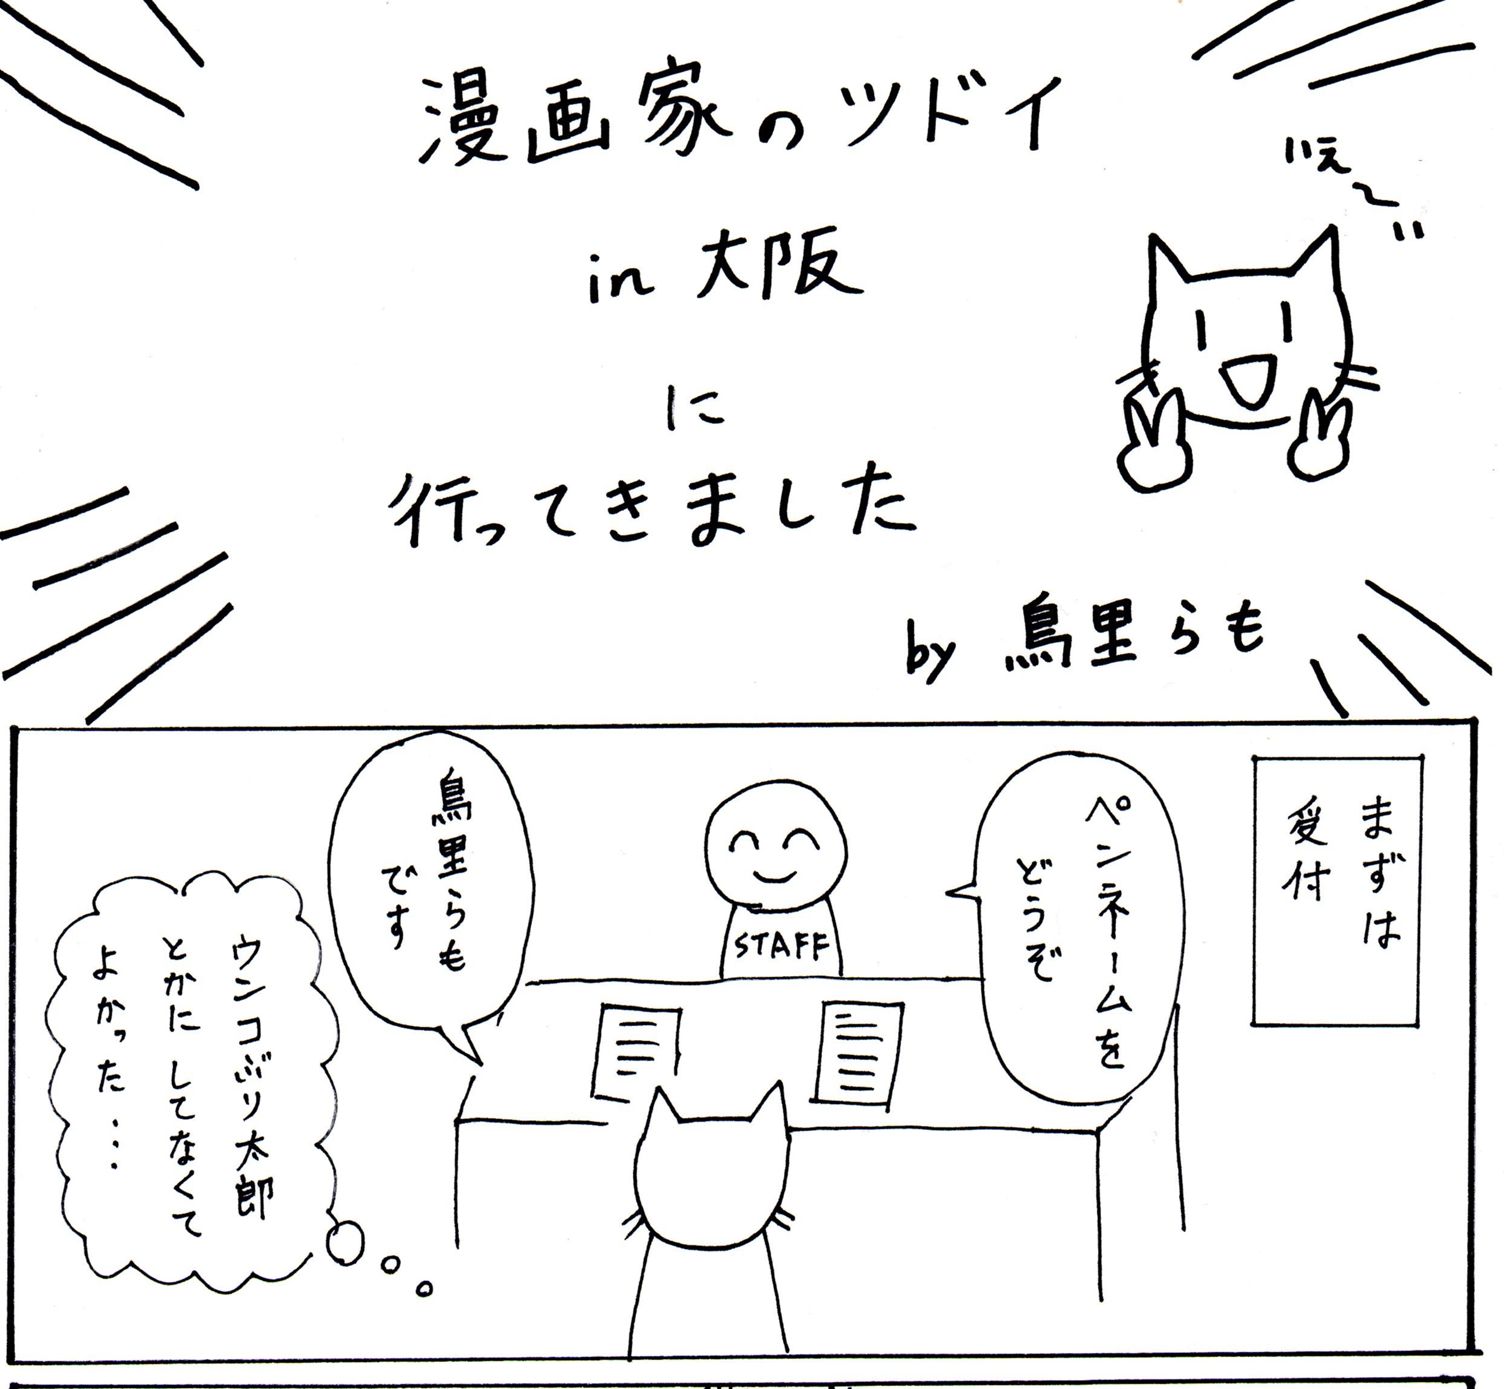 漫画家のツドイ
in 大阪
に
行ってきました
いえ〜
by 鳥里らも
まずは
受付
ペンネームを
どうぞ
STAFF
鳥里らも
です
ウンコぶり太郎
とかにしてなくて
よかった・・・